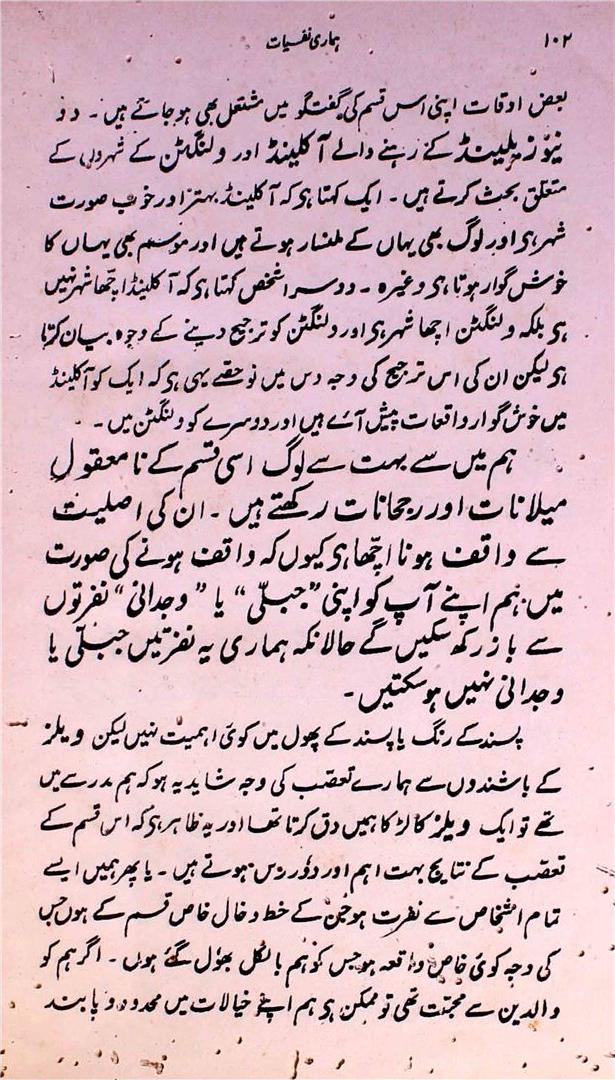 ۱۰۲ ہماری نفسیات
بعض اوقات اپنی اس قسم کی گفتگو میں مشتعل بھی ہو جاتے ہیں ۔ دو
نیوزیلینڈ کے رہنے والے آکلینڈ اور ولنگٹن کے شہروں کے
متعلق بحث کرتے ہیں ۔ ایک کہتا ہی کہ آکلینڈ بہتر اور خوب صورت
شہر ہی اور لوگ بھی یہاں کے ملنسار ہوتے ہیں اور موسم بھی یہاں کا
خوش گوار ہوتا ہی وغیرہ ۔ دوسرا شخص کہتا ہی کہ آکلینڈ اچھا شہر نہیں
ہی بلکہ ولنگٹن اچھا شہر ہی اور ولنگٹن کو ترجیح دینے کے وجوہ بیان کرتا
ہی لیکن ان کی اس ترجیح کی وجہ دس میں نو حصّے یہی ہی کہ ایک کو آکلینڈ
میں خوش گوار واقعات پیش آئے ہیں اور دوسرے کو ولنگٹن میں ۔
ہم میں سے بہت سے لوگ اسی قسم کے نا معقول
میلانات اور رجحانات رکھتے ہیں ۔ ان کی اصلیت
سے واقف ہونا اچھا ہی کیوں کہ واقف ہونے کی صورت
میں ہم اپنے آپ کو اپنی ”جبلّی“ یا ”وجدانی“ نفرتوں
سے باز رکھ سکیں گے حالانکہ ہماری یہ نفرتیں جبلّی یا
وجدانی نہیں ہو سکتیں ۔
پسند کے رنگ یا پسند کے پھول میں کوئی اہمیت نہیں لیکن ویلز
کے باشندوں سے ہمارے تعصّب کی وجہ شاید یہ ہو کہ ہم مدرسے میں
تھے تو ایک ویلز کا لڑکا ہمیں دق کرتا تھا اور یہ ظاہر ہی کہ اس قسم کے
تعصّب کے نتایج بہت اہم اور دُور رس ہوتے ہیں ۔ یا پھر ہمیں ایسے
تمام اشخاص سے نفرت ہو جن کے خط و خال خاص قسم کے ہوں جس
کی وجہ کوئی خاص واقعہ ہو جس کو ہم بالکل بھول گئے ہوں ۔ اگر ہم کو
والدین سے محبّت تھی تو ممکن ہی ہم اپنے خیالات میں محدود و پابند